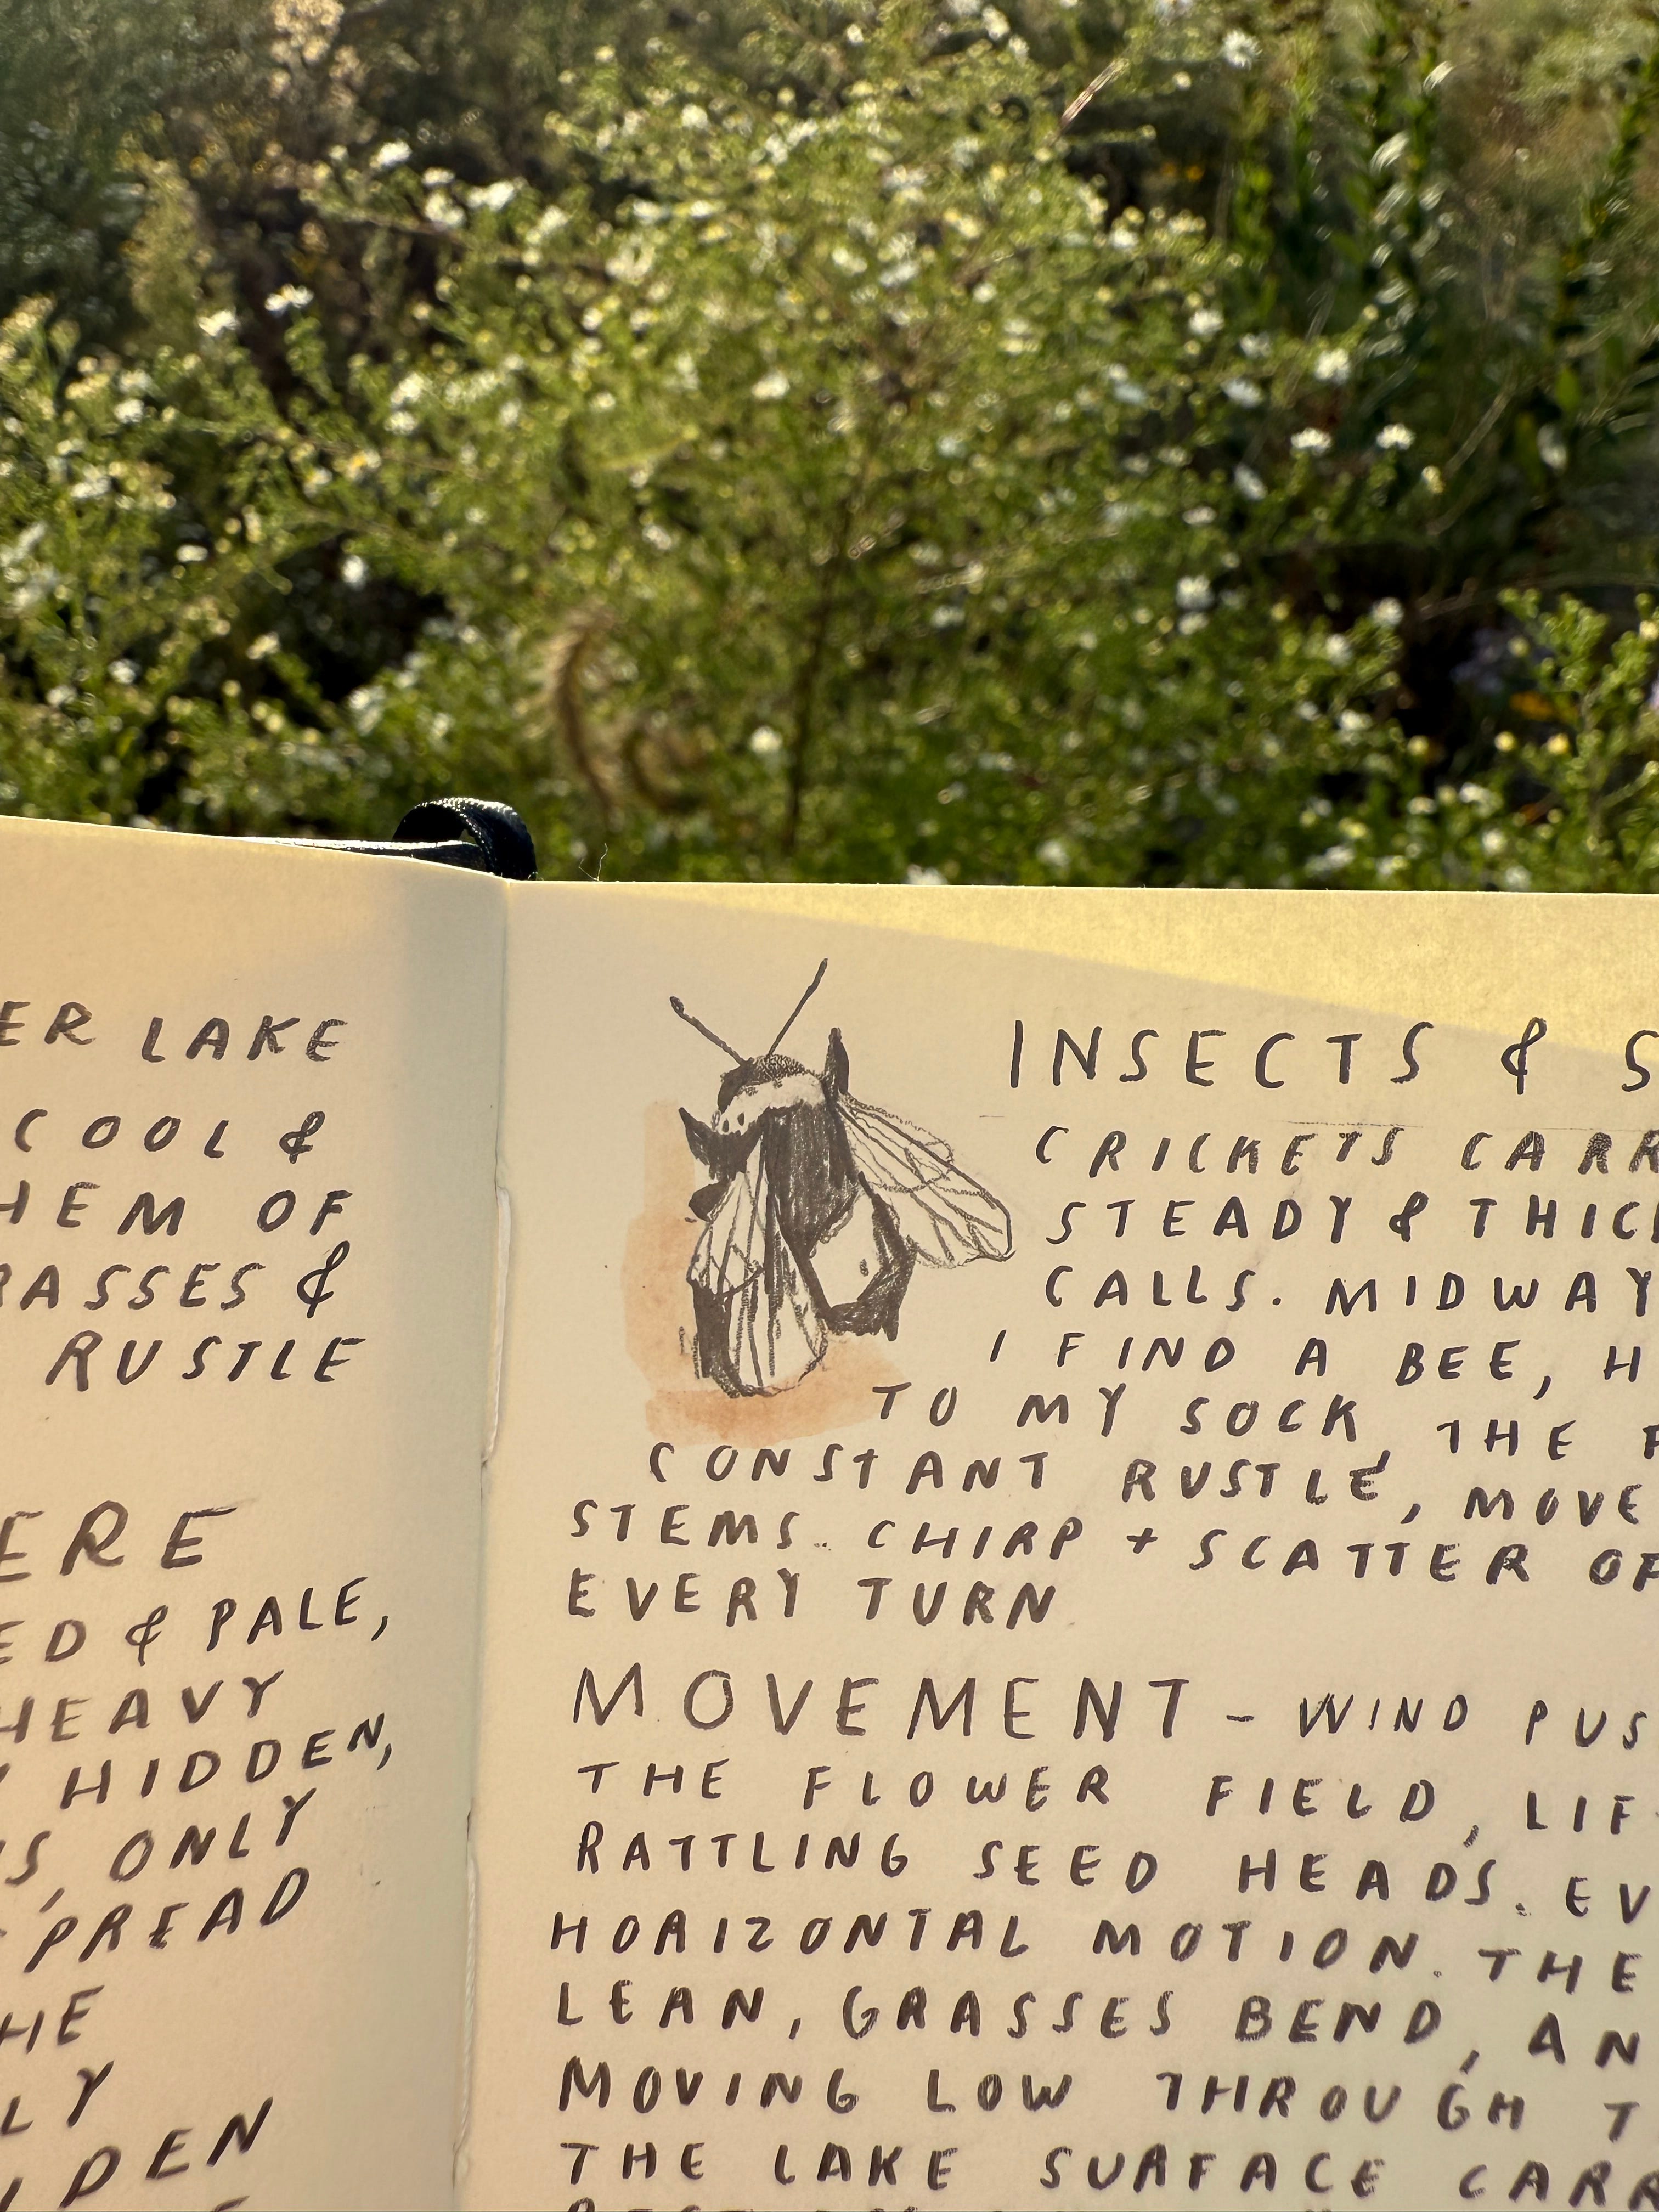 ER LAKE
COOL &
HEM OF
RASSES &
RUSTLE
ERE
ED & PALE,
HEAVY
Y HIDDEN,
S, ONLY
SPREAD
HE
LY
DEN
INSECTS & S
CRICKETS CARR
STEADY & THIC
CALLS. MIDWAY
I FIND A BEE, H
TO MY SOCK, THE F
CONSTANT RUSTLE, MOVE
STEMS. CHIRP + SCATTER OF
EVERY TURN
MOVEMENT - WIND PUS
THE FLOWER FIELD, LIF
RATTLING SEED HEADS. EV
HORIZONTAL MOTION. THE
LEAN, GRASSES BEND, AN
MOVING LOW THROUGH T
THE LAKE SURFACE CARR